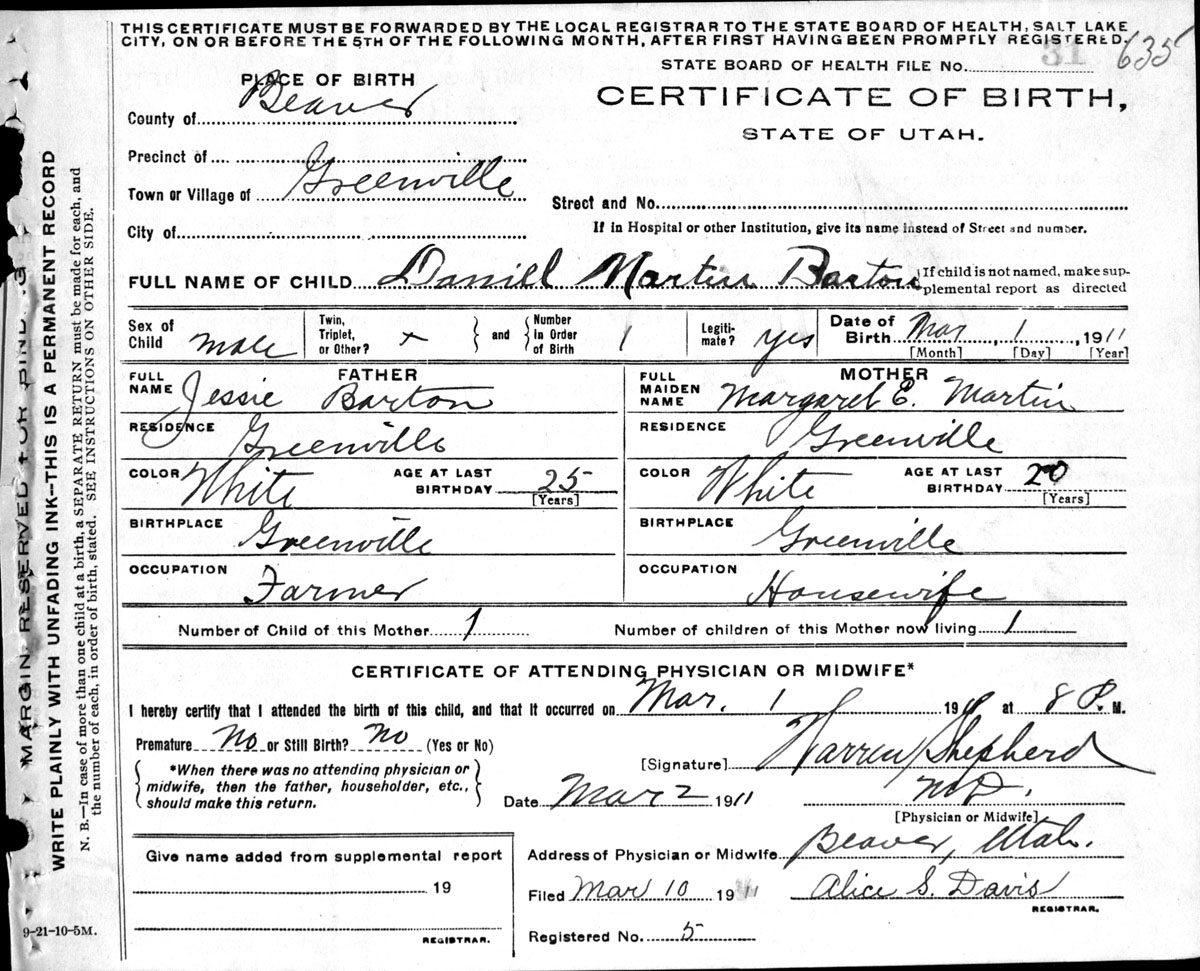 THIS CERTIFICATE MUST BE FORWARDED BY THE LOCAL REGISTRAR TO THE STATE BOARD OF HEALTH, SALT LAKE
CITY, ON OR BEFORE THE 5TH OF THE FOLLOWING MONTH, AFTER FIRST HAVING BEEN PROMPTLY REGISTERED.
STATE BOARD OF HEALTH FILE NO. 31 635
PLACE OF BIRTH
CERTIFICATE OF BIRTH,
STATE OF UTAH.
County of Beaver
Precinct of
Town or Village of Greenville
Street and No.
City of
If in Hospital or other Institution, give its name instead of Street and number.
FULL NAME OF CHILD Daniell Martin Barton
If child is not named, make sup-
plemental report as directed
Sex of
Child male
Twin,
Triplet,
or Other? +
and
Number
In Order
of Birth 1
Legiti-
mate? yes
Date of
Birth Mar 1, 1911
[Month] [Day] [Year]
FATHER
FULL
NAME Jessie Barton
RESIDENCE Greenville
COLOR White
AGE AT LAST
BIRTHDAY 25
[Years]
BIRTHPLACE Greenville
OCCUPATION Farmer
MOTHER
FULL
MAIDEN
NAME Margaret E. Martin
RESIDENCE Greenville
COLOR White
AGE AT LAST
BIRTHDAY 20
[Years]
BIRTHPLACE Greenville
OCCUPATION Housewife
Number of Child of this Mother 1
Number of children of this Mother now living 1
CERTIFICATE OF ATTENDING PHYSICIAN OR MIDWIFE*
I hereby certify that I attended the birth of this child, and that it occurred on Mar. 1 1911 at 8 P. M.
Premature No or Still Birth? No (Yes or No)
*When there was no attending physician or
midwife, then the father, householder, etc.,
should make this return.
[Signature] Warren Shepherd
Date Mar 2 1911
M.D.
[Physician or Midwife]
Address of Physician or Midwife Beaver, Utah.
Give name added from supplemental report
19
REGISTRAR.
Filed Mar 10 1911
Alice S. Davis
REGISTRAR.
Registered No. 5
MARGIN RESERVED FOR BINDING
WRITE PLAINLY WITH UNFADING INK—THIS IS A PERMANENT RECORD
N. B.—In case of more than one child at a birth, a SEPARATE RETURN must be made for each, and
the number of each, in order of birth, stated. SEE INSTRUCTIONS ON OTHER SIDE.
9-21-10-5M.